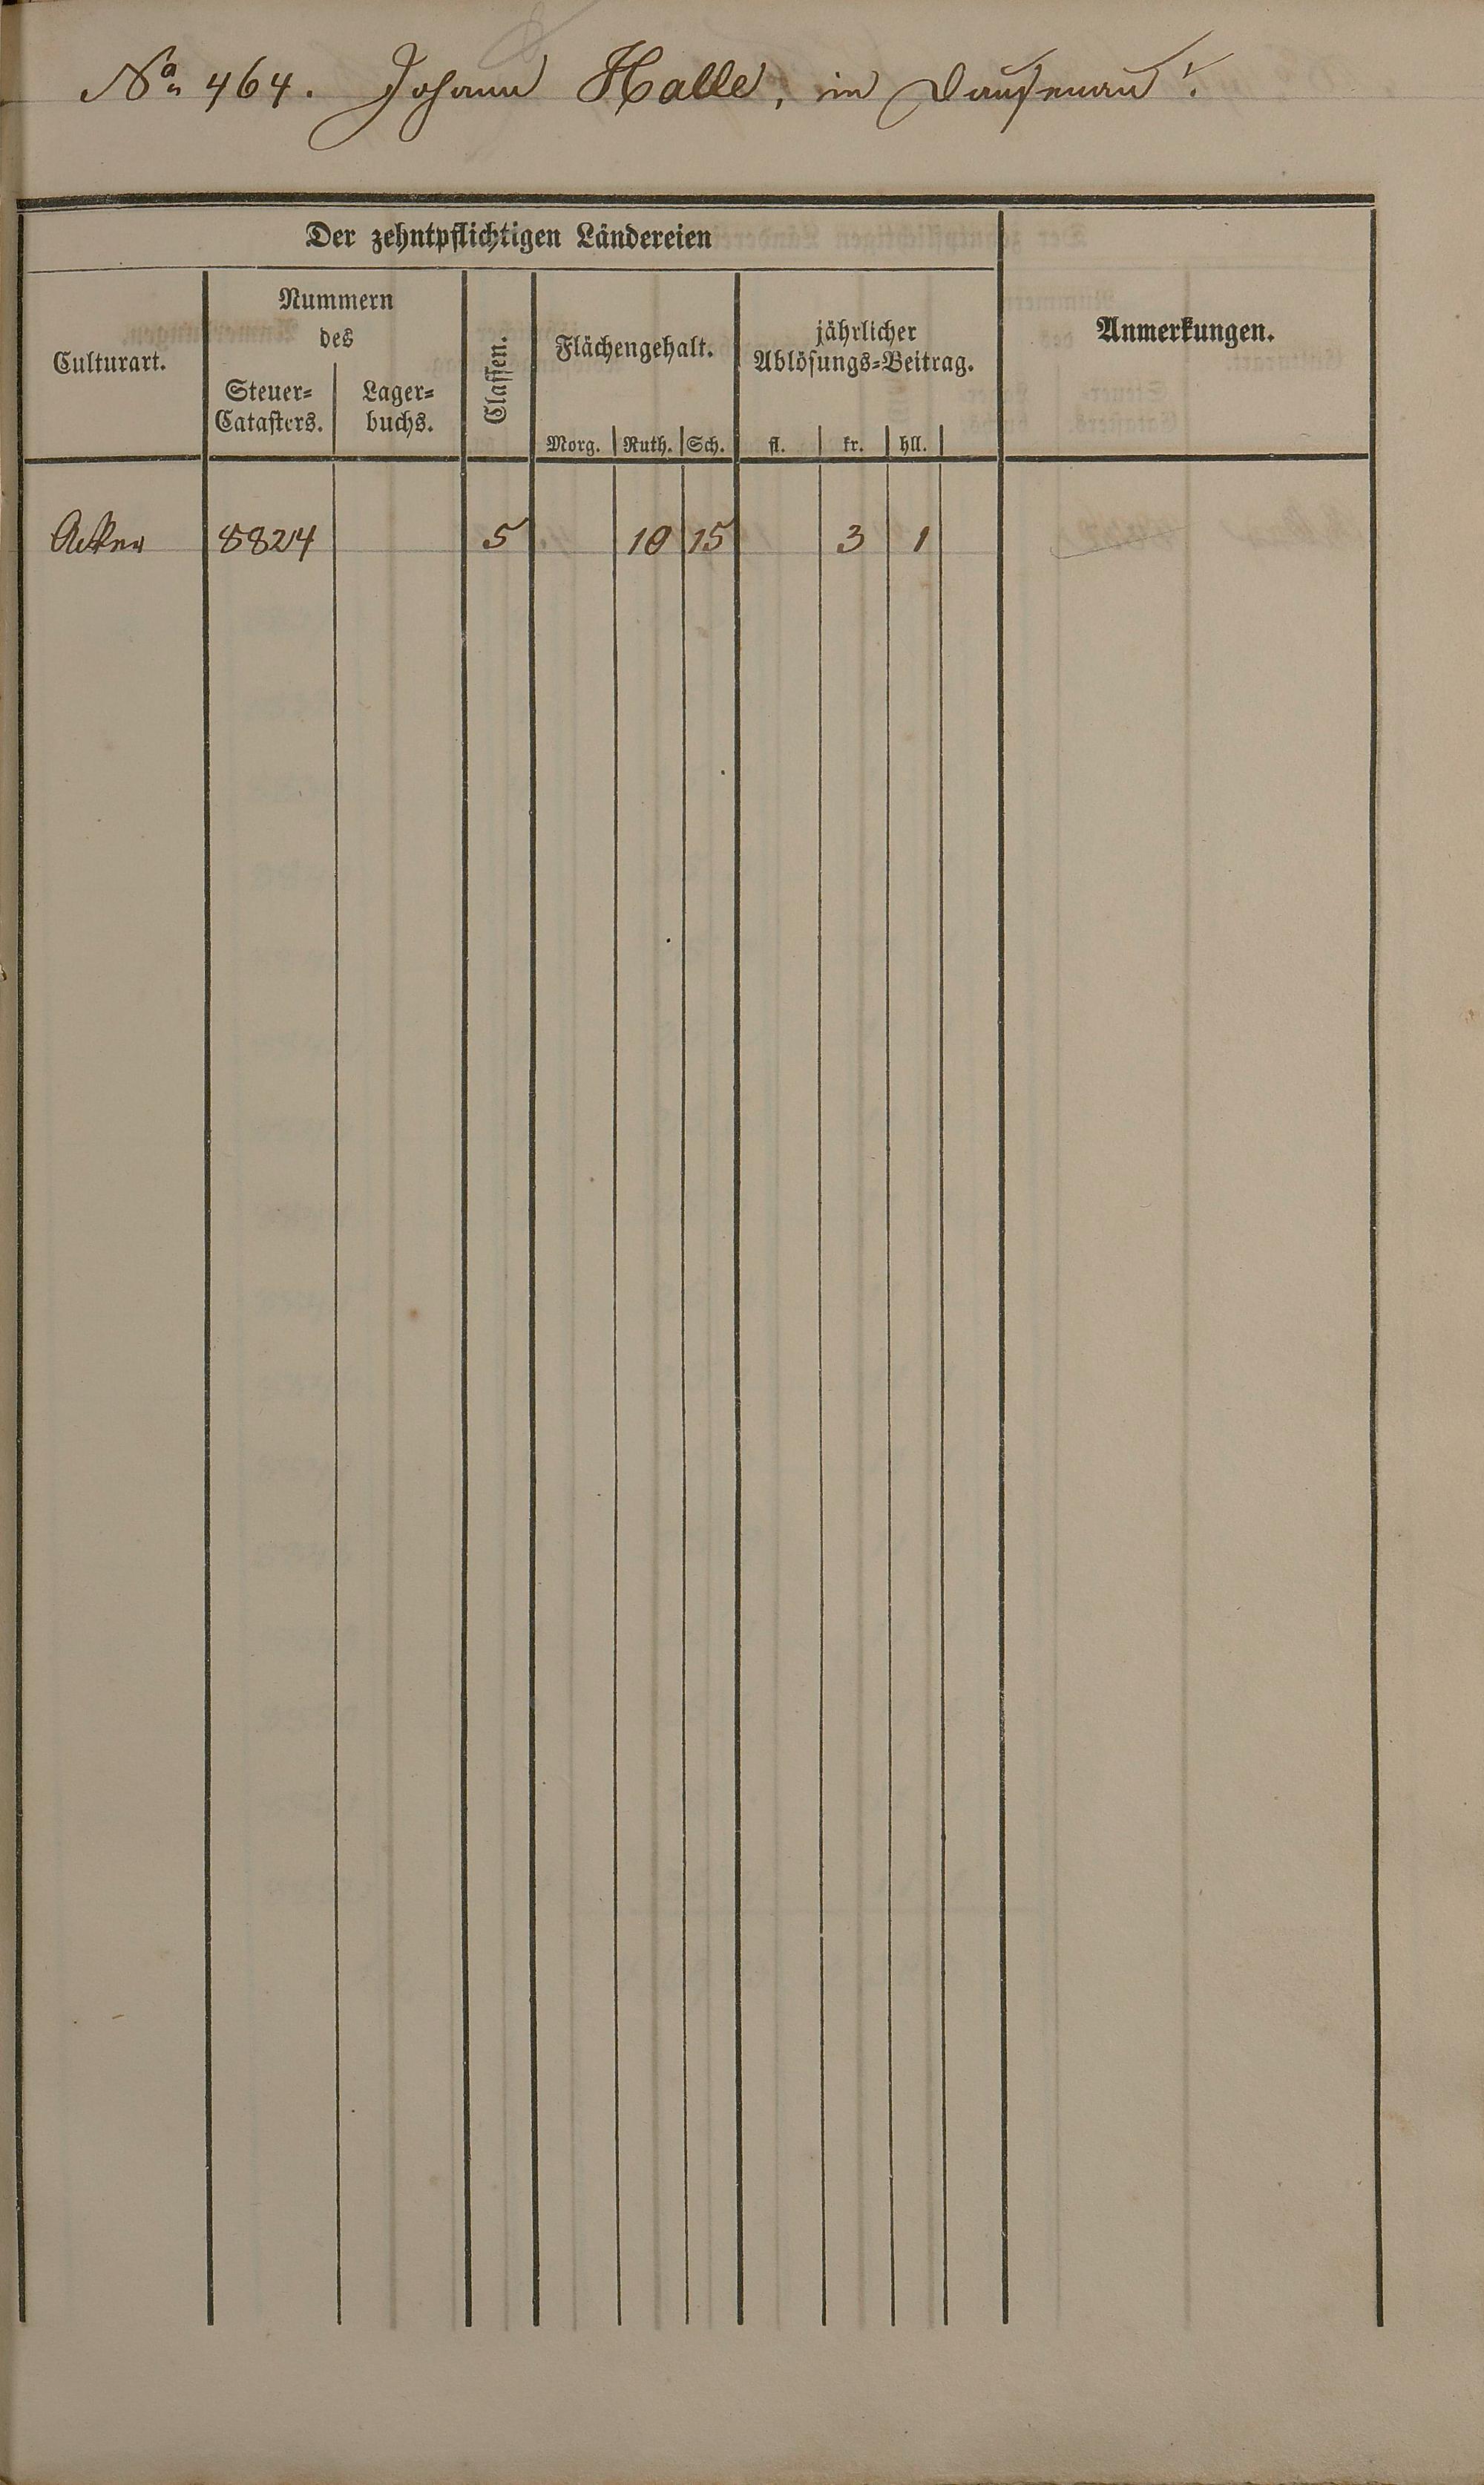 No 464. Johann Halle, in Dausenau.
Der zehntpflichtigen Ländereien
Culturart.
Nummern
des
Steuer=
Catasters.
Lager=
buchs.
Classen.
Flächengehalt.
Morg. Ruth. Sch.
jährlicher
Ablösungs=Beitrag.
fl. kr. hll.
Anmerkungen.
Acker 8824 5 10 15 3 1